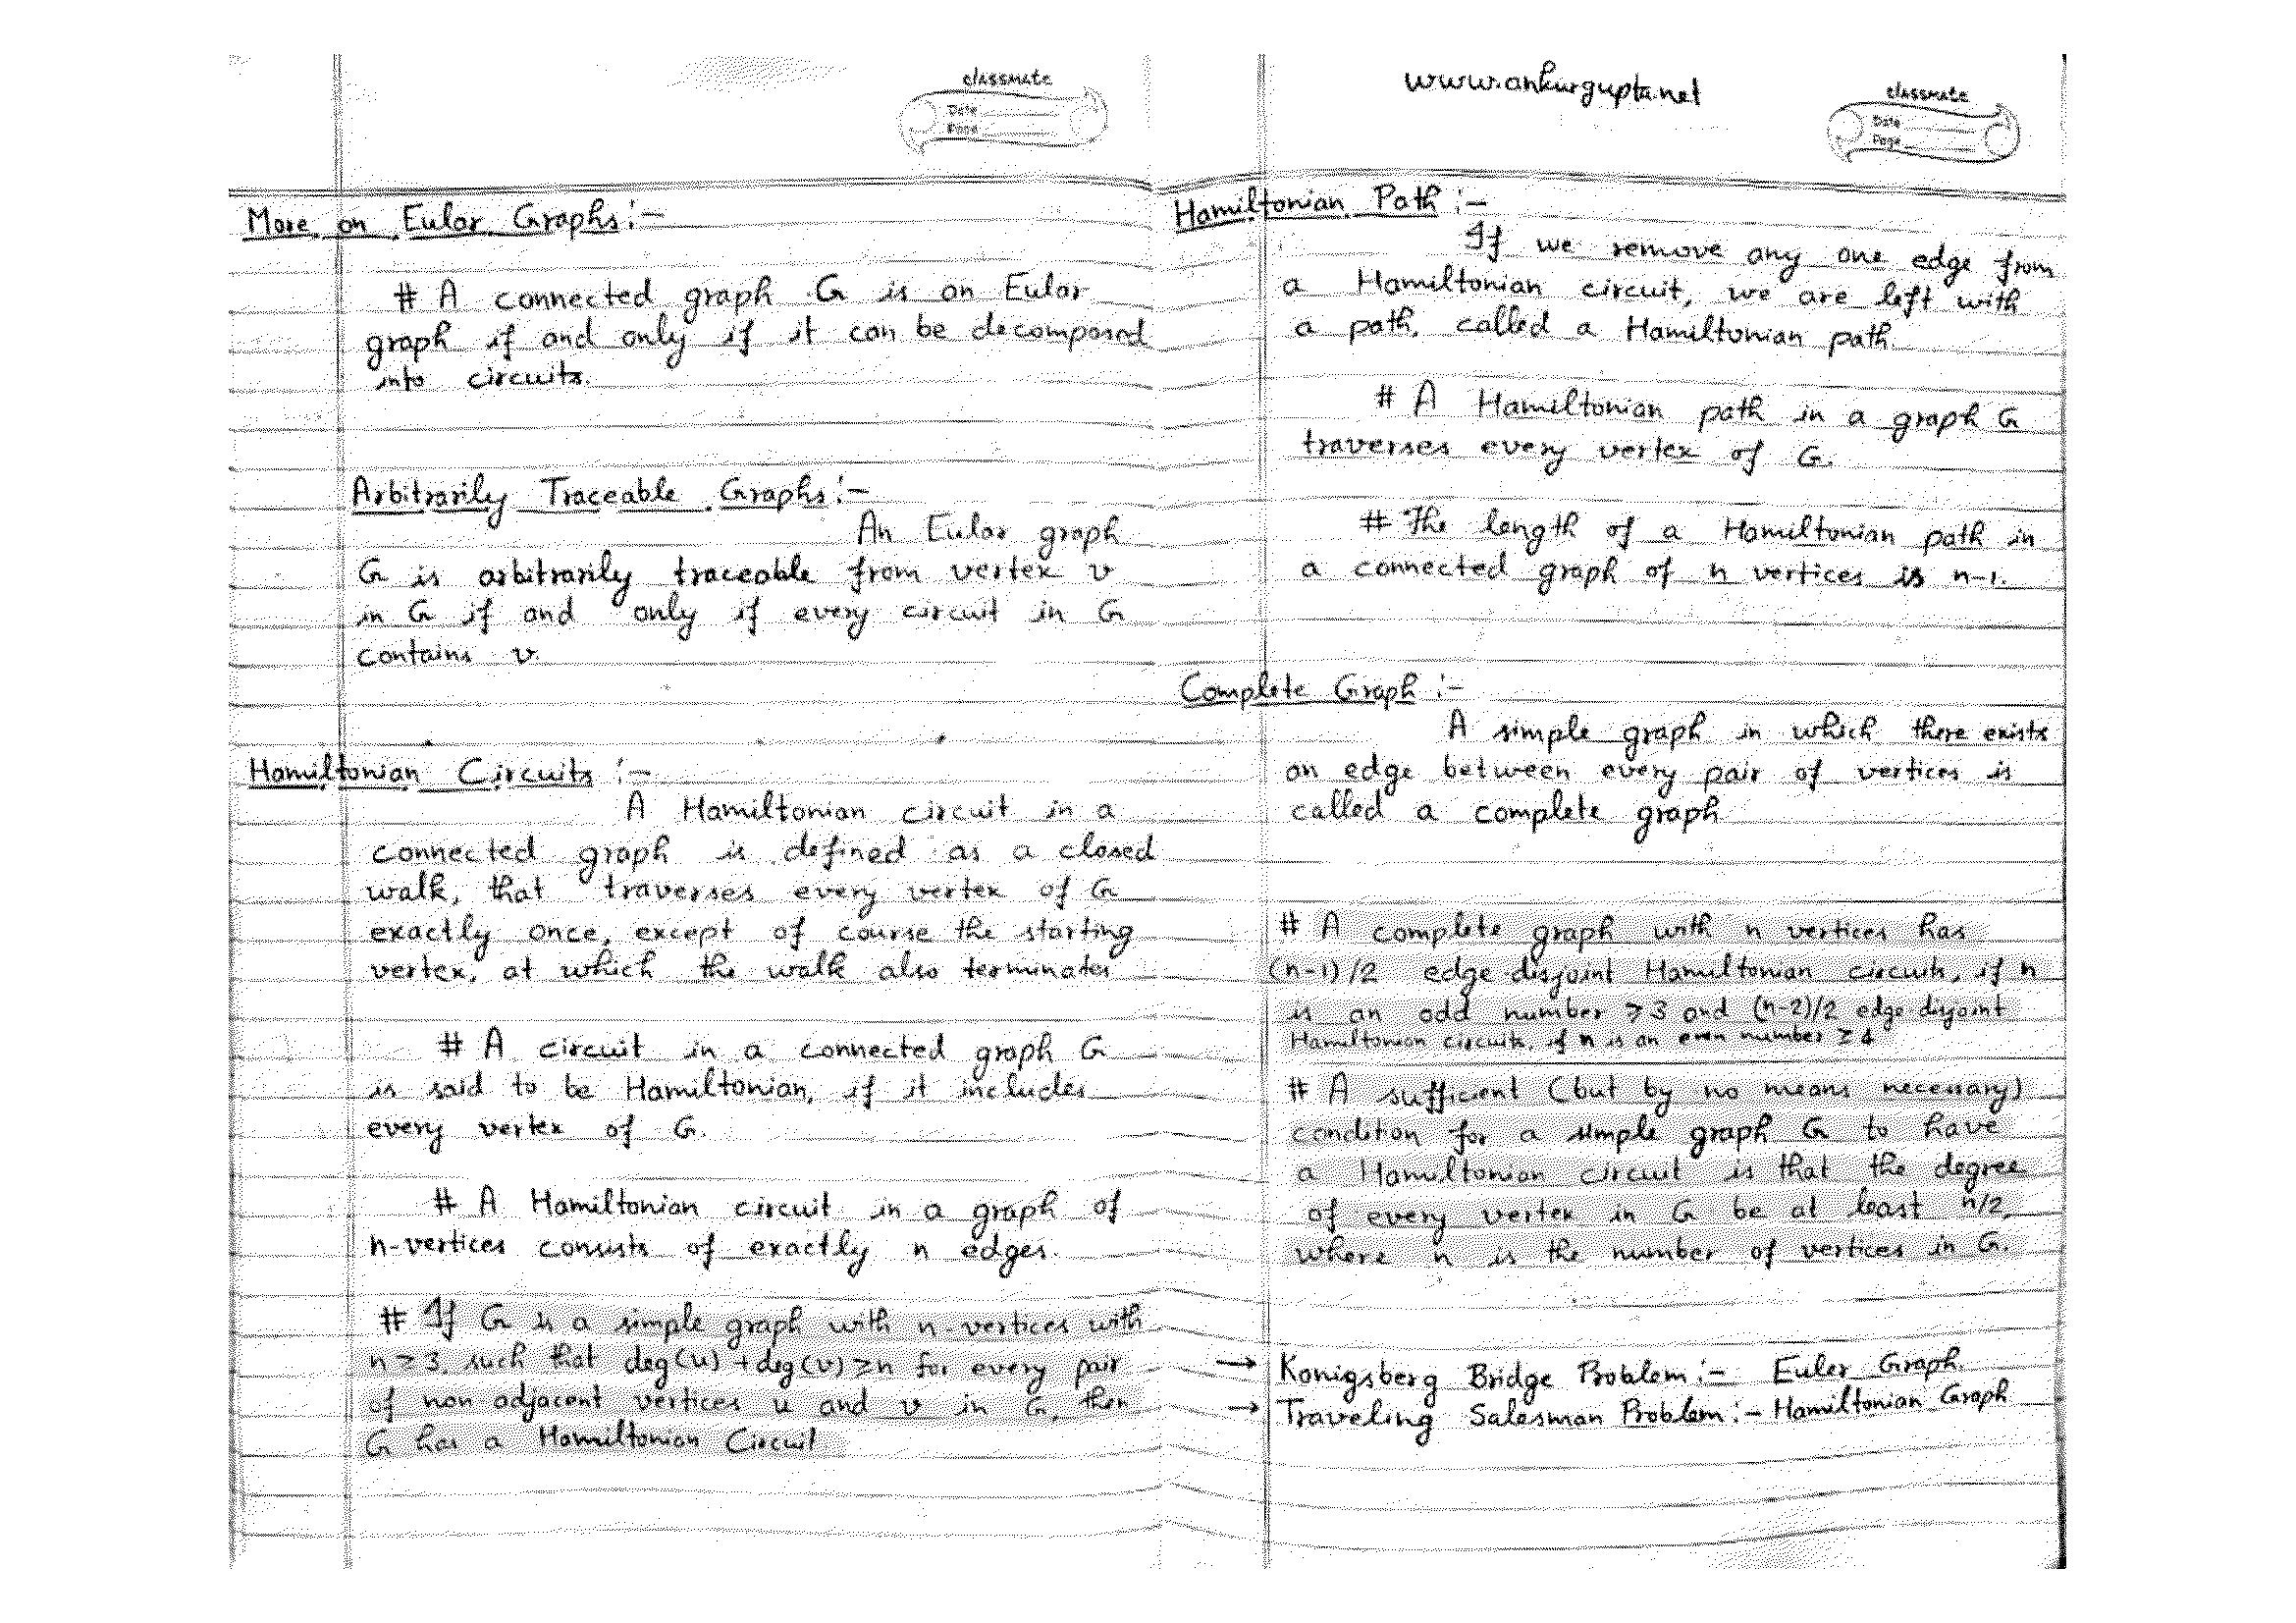 classmate
Date
Page
More on Eular Graphs :-
# A connected graph G is an Eular
graph if and only if it can be decomposed
into circuits.
Arbitrarily Traceable Graphs :-
An Eular graph
G is arbitrarily traceable from vertex v
in G if and only if every circuit in G
contains v.
Hamiltonian Circuits :-
A Hamiltonian circuit in a
connected graph is defined as a closed
walk, that traverses every vertex of G
exactly once, except of course the starting
vertex, at which the walk also terminates
# A circuit in a connected graph G
is said to be Hamiltonian, if it includes
every vertex of G.
# A Hamiltonian circuit in a graph of
n-vertices consists of exactly n edges.
# If G is a simple graph with n-vertices with
n ≥ 3, such that deg(u) + deg(v) ≥ n for every pair
of non adjacent vertices u and v in G, then
G has a Hamiltonian Circuit
www.ankurgupta.net
classmate
Date
Page
Hamiltonian Path :-
If we remove any one edge from
a Hamiltonian circuit, we are left with
a path, called a Hamiltonian path.
# A Hamiltonian path in a graph G
traverses every vertex of G.
# The length of a Hamiltonian path in
a connected graph of n vertices is n-1.
Complete Graph :-
A simple graph in which there exists
an edge between every pair of vertices is
called a complete graph
# A complete graph with n vertices has
(n-1)/2 edge disjoint Hamiltonian circuits, if n
is an odd number ≥ 3 and (n-2)/2 edge disjoint
Hamiltonian circuits, if n is an even number ≥ 4
# A sufficient (but by no means necessary)
condition for a simple graph G to have
a Hamiltonian circuit is that the degree
of every vertex in G be at least n/2,
where n is the number of vertices in G.
→ Konigsberg Bridge Problem :- Euler Graph.
→ Traveling Salesman Problem :- Hamiltonian Graph